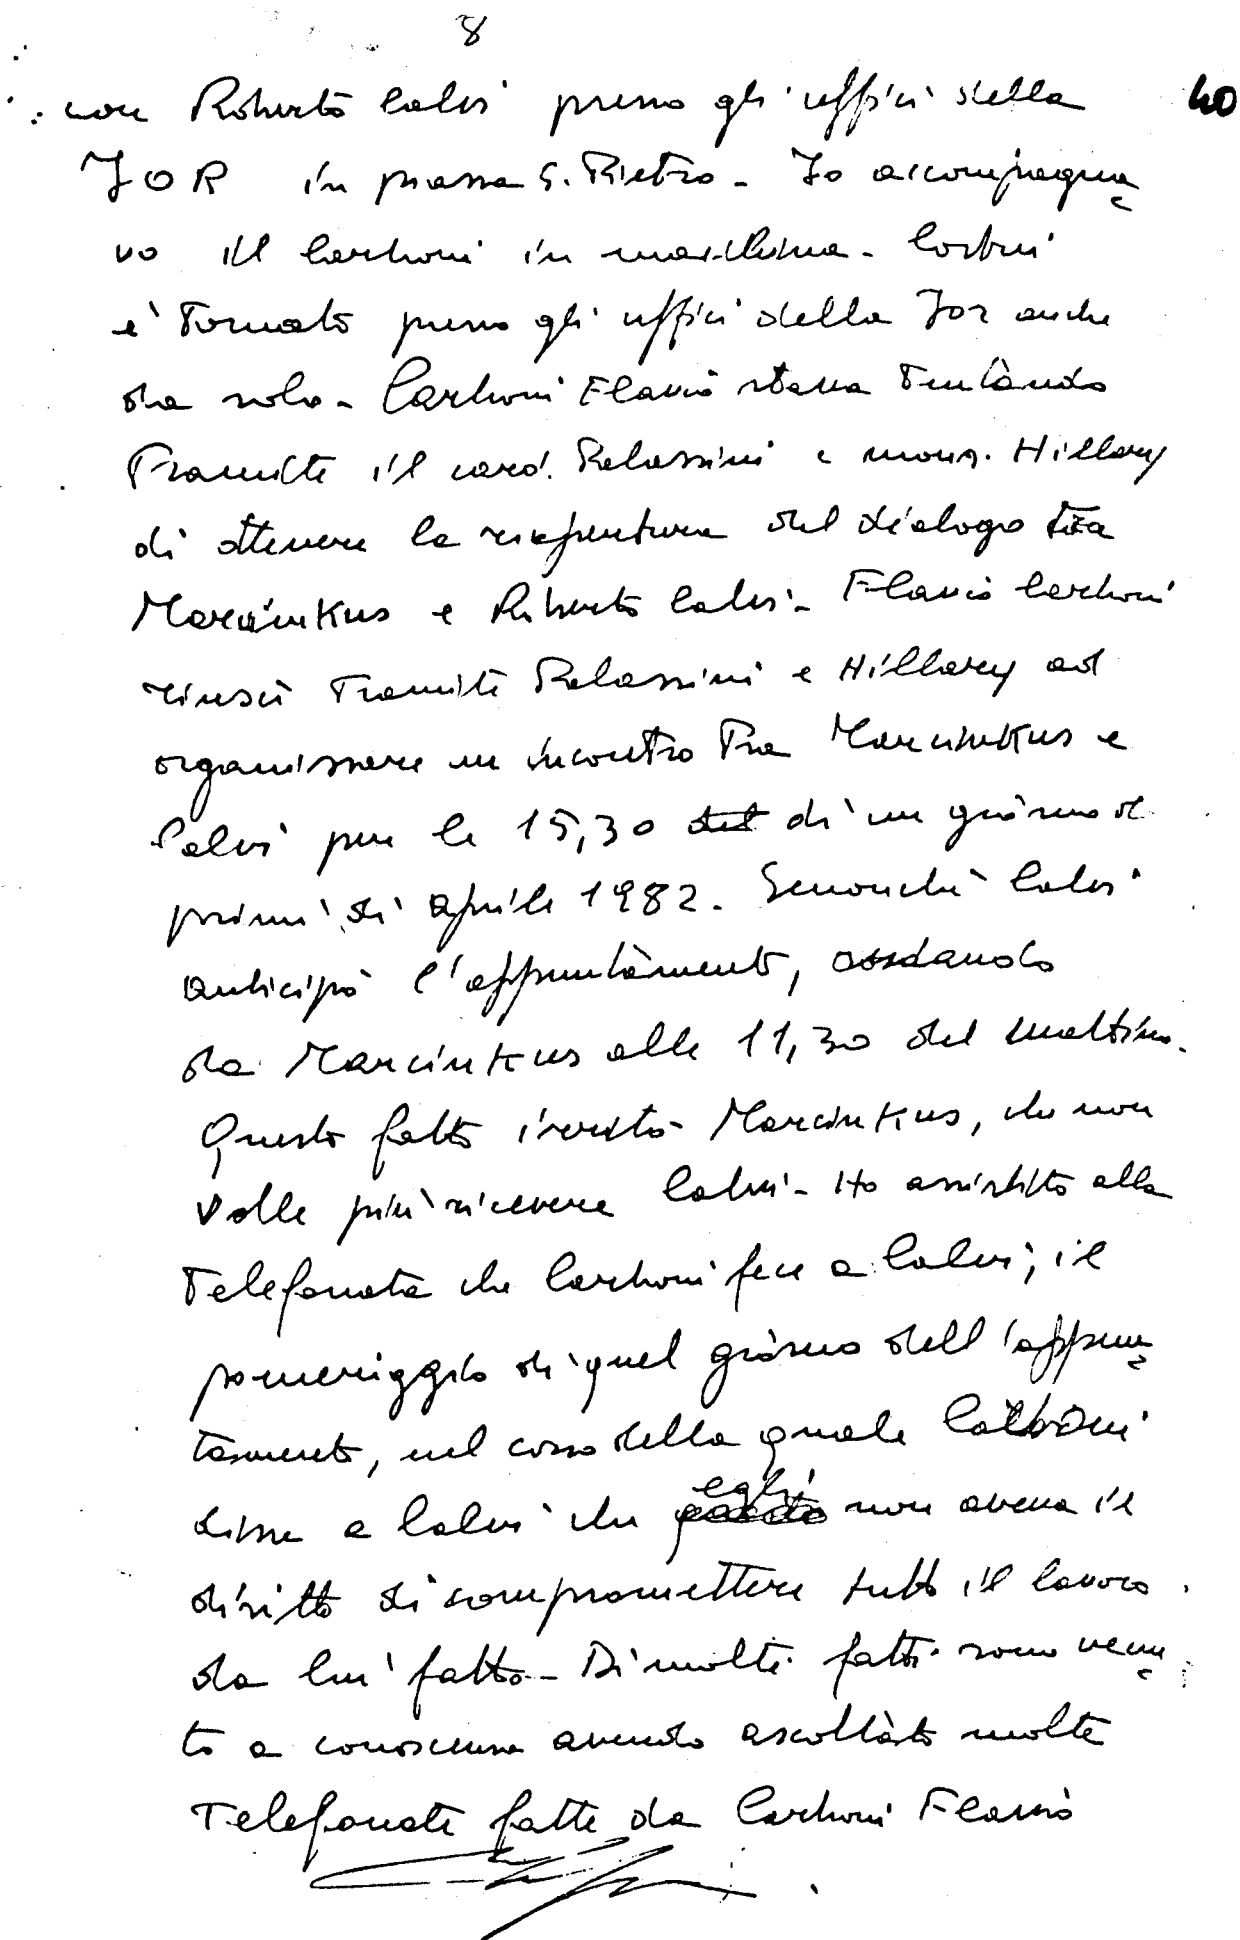 8
40
con Roberto Calvi presso gli uffici della
IOR in piazza S. Pietro - Io accompagna
vo il Carboni in macchina - Costui
è tornato presso gli uffici della Ior anche
da solo - Carboni Flavio stava tentando
tramite il card. Palazzini e mons. Hillary
di ottenere la riapertura del dialogo tra
Marcinkus e Roberto Calvi - Flavio Carboni
riuscì tramite Palazzini e Hillary ad
organizzare un incontro tra Marcinkus e
Calvi per le 15,30 del di un giorno
primi di aprile 1982. Senonché Calvi
anticipò l'appuntamento, andando
da Marcinkus alle 11,30 del mattino.
Questo fatto irritò Marcinkus, che non
volle più ricevere Calvi - Ho assistito alla
telefonata che Carboni fece a Calvi, il
pomeriggio di quel giorno dell'appun
tamento, nel corso della quale Carboni
disse a Calvi che egli non aveva il
diritto di compromettere tutto il lavoro
da lui fatto - Di molti fatti sono venu
to a conoscenza avendo ascoltato molte
telefonate fatte da Carboni Flavio